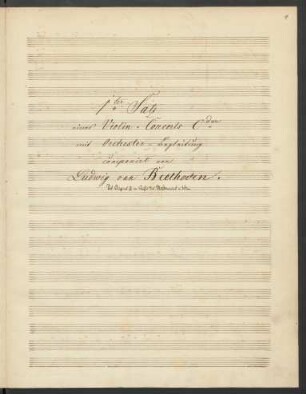 1ter Satz
eines Violin-Concerts C dur
mit Orchester-Begleitung
componirt von
Ludwig van Beethoven.